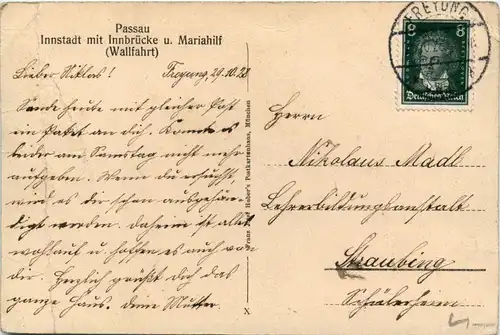 Passau
Innstadt mit Innbrücke u. Mariahilf
(Wallfahrt)
FREYUNG
8 8
Deutsches Reich
Lieber Niklas! Freyung, 29.10.28
Sende heute mit gleicher Post
ein Paket an dich. Konnte es
leider am Samstag nicht mehr
aufgeben. Wenn du ersuchst
wird es dir schon ausgehän-
digt werden. daheim ist alles
wohlauf u. hoffen es auch von
dir. Herzlich grüßt dich das
ganze Haus. deine Mutter
Huber's Postkartenhaus, München
X
Herrn
Nikolaus Madl
Lehrerbildungsanstalt
Straubing
Schülerheim